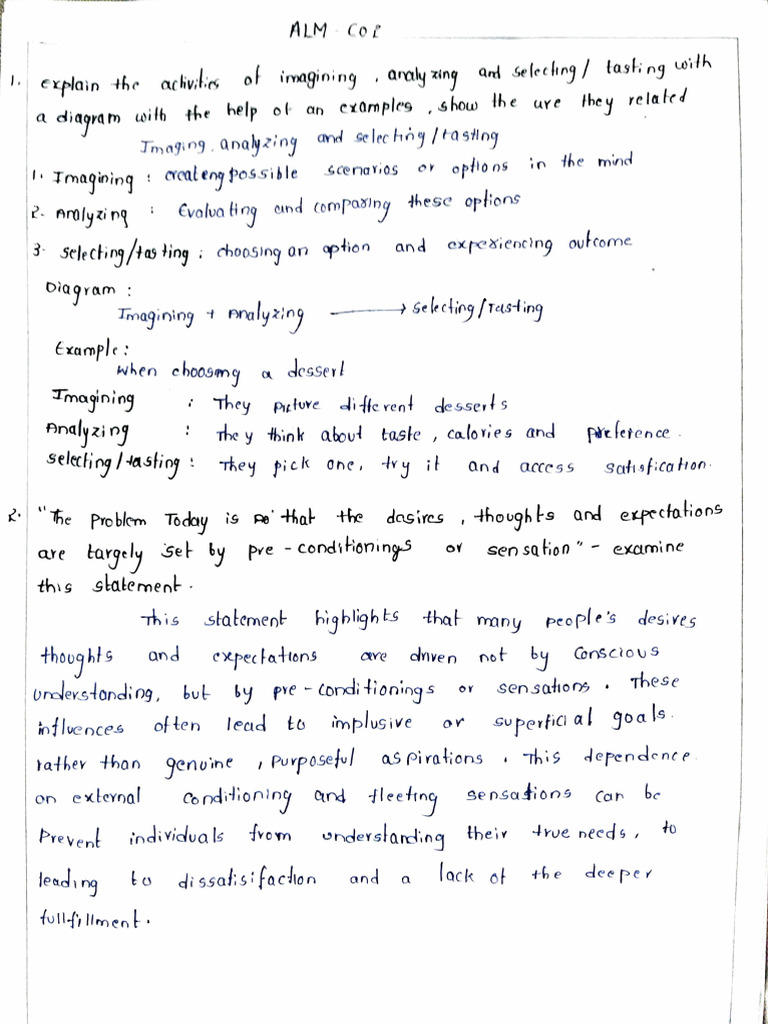 ALM - CO2
1. explain the activities of imagining, analyzing and selecting / tasting with
a diagram with the help of an examples, show the ure they related
Imaging, analyzing and selecting/tasting
1. Imagining : createng possible scenarios or options in the mind
2. Analyzing : Evaluating and comparing these options
3. selecting/tasting : choosing an option and experiencing outcome
Diagram :
Imagining + Analyzing → selecting/Tasting
Example :
when choosing a dessert
Imagining : They picture different desserts
Analyzing : they think about taste, calories and preference.
selecting / tasting : They pick one, try it and access satisfication.
2. "The problem Today is that the dasires, thoughts and expectations
are targely set by pre-conditionings or sensation" - examine
this statement.
This statement highlights that many people's desires
thoughts and expectations are driven not by conscious
understanding, but by pre-conditionings or sensations. These
influences often lead to implusive or superficial goals.
rather than genuine, purposeful aspirations. This dependence
on external conditioning and fleeting sensations can be
prevent individuals from understanding their true needs, to
leading to dissatisifaction and a lack of the deeper
fullfillment.